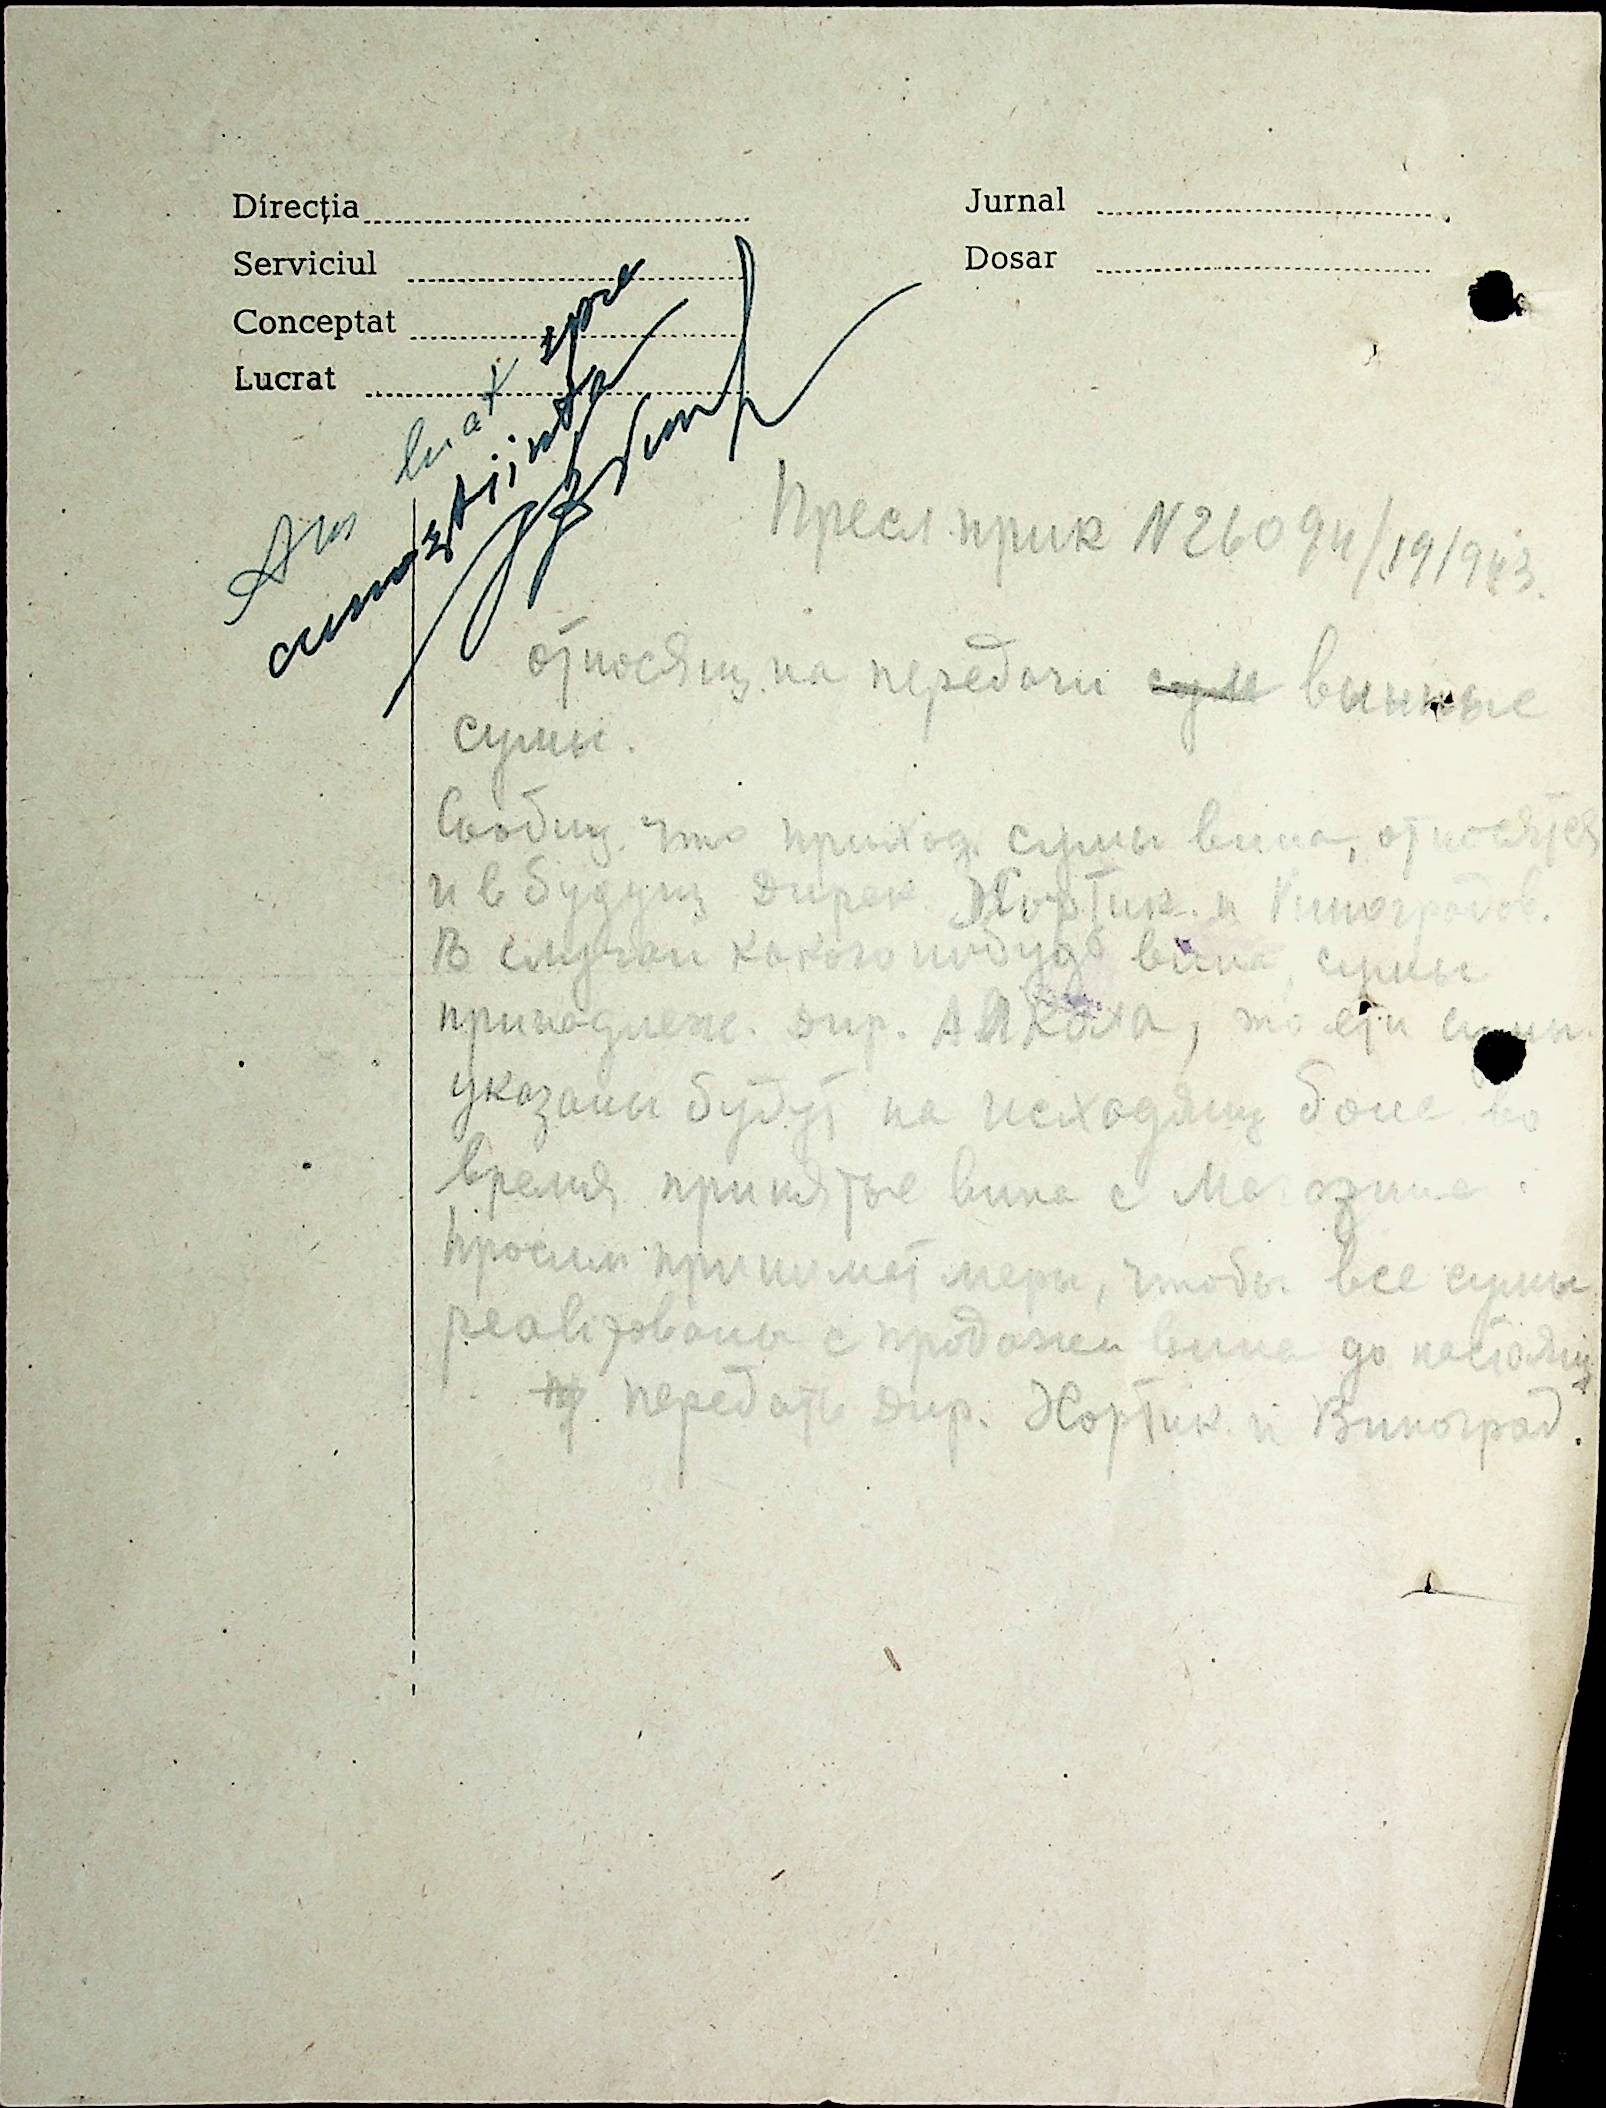 Direcția
Serviciul
Conceptat
Lucrat
Jurnal
Dosar
Am luat spre
cunoștiință
Пресл. прик N 26094/19/943.
относящ. на передачи сум винные
сумы.
Сообщ. что приход. сумы вина, относятся
и в будущ дирек. Хортик. и Виноградов.
В случаи какогонибудь вина, сумы
принадлеж. дир. Алкола, то эти сумы
указаны будут на исходящ боне во
время принятье вина с Магазина.
Просим принимат меры, чтобы все сумы
реализованы с продажи вина до настоящ
передать дир. Хортик. и Виноград.